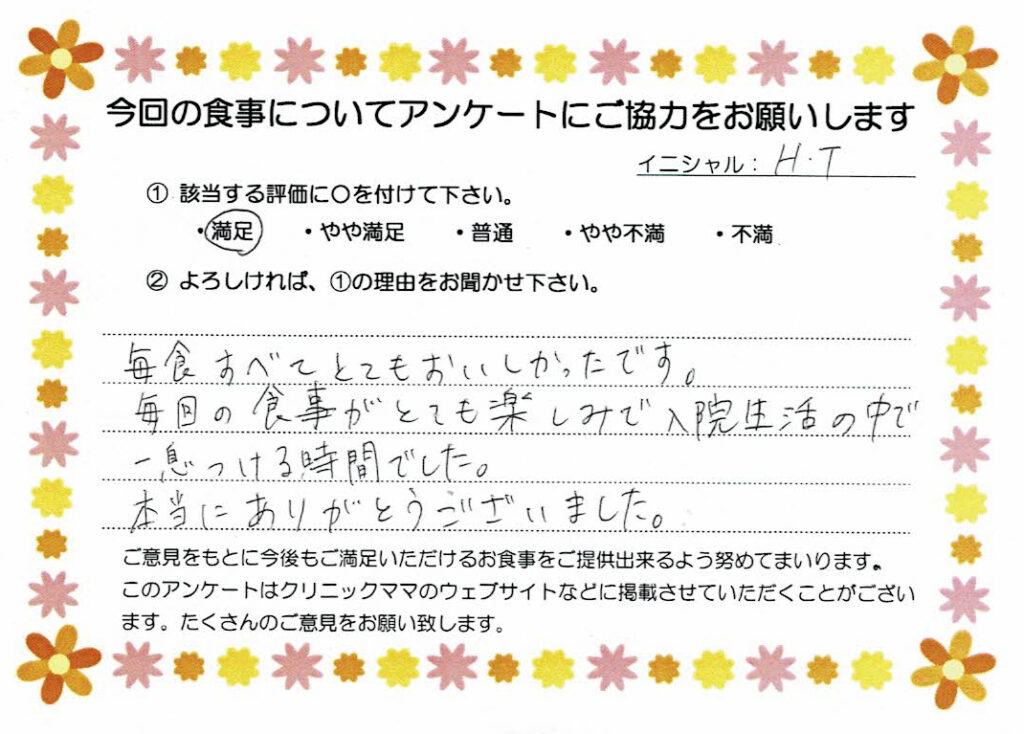 今回の食事についてアンケートにご協力をお願いします
イニシャル：H・T
① 該当する評価に〇を付けて下さい。
・満足 ・やや満足 ・普通 ・やや不満 ・不満
② よろしければ、①の理由をお聞かせ下さい。
毎食すべてとてもおいしかったです。
毎回の食事がとても楽しみで入院生活の中で
一息つける時間でした。
本当にありがとうございました。
ご意見をもとに今後もご満足いただけるお食事をご提供出来るよう努めてまいります。
このアンケートはクリニックママのウェブサイトなどに掲載させていただくことがござい
ます。たくさんのご意見をお願い致します。